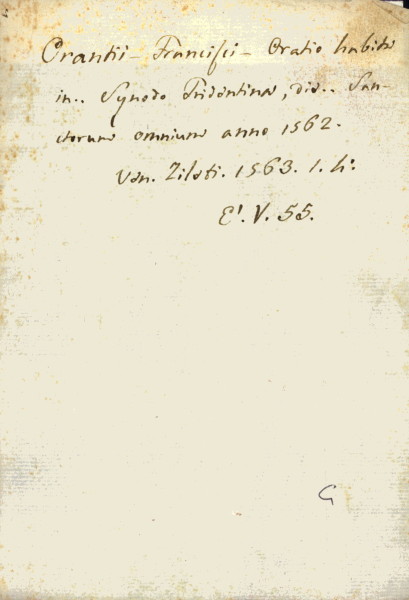 Orantii - Francisci - Oratio habita
in.. Synodo Tridentina, die.. San-
ctorum omnium anno 1562.
Ven. Zileti. 1563. 1. h:
E'. V. 55.
G